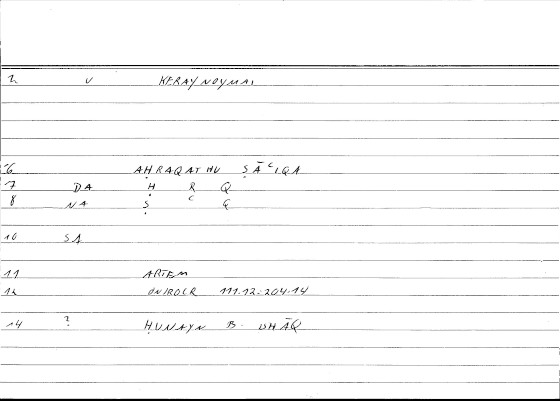 2 V KERAYNOYMAI
6 AḤRAQATHU ṢĀʿIQA
7 DA Ḥ R Q
8 NA Ṣ ʿ Q
10 SA
11 ARTEM
12 ONIROCR 111.12-204.14
14 ? ḤUNAYN B. ISḤĀQ